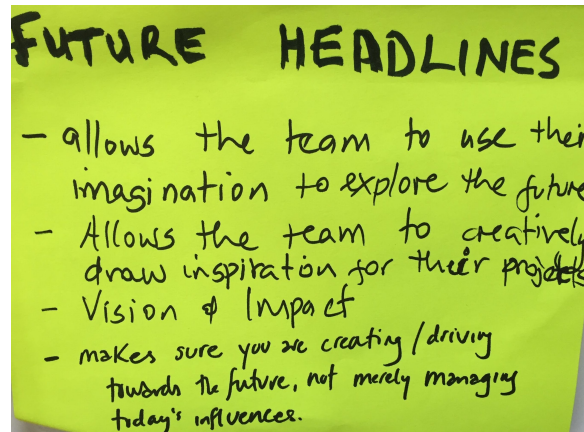 FUTURE HEADLINES
- allows the team to use their
imagination to explore the future
- Allows the team to creatively
draw inspiration for their projects
- Vision & Impact
- makes sure you are creating/driving
towards the future, not merely managing
today's influences.